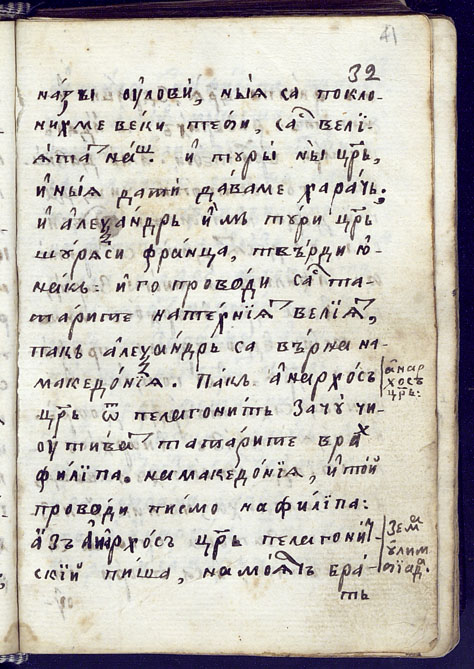 41
32
на́ꙁы оу҆лови́, ны́ѧ са покло-
нихме веки теѳи, са҆т велї-
ѧ҆та на́ш. и҆ туры́ ны цр҃ь,
и҆ ны́ѧ дати́ да́ваме хара́чь,
и҆ а҆леѯа́ндрь и҆мь ту́ри цр҃ь
шу́рѧси фра́нца, твъ́рди ю҆-
на́къ: и҆ го проводи са҆т та-
тарите натехнїѧт велїѧт,
пакъ а҆леѯа́ндрь са въ́рна на-
македо́нїѧ. Па́къ а҆нархо́съ
цр҃ь ѿ пелагонить зачу̀ чи-
оу҆тива́т татарите вра́х
фили́па. на македо́нїѧ, и҆ то́й
проводи писмо на фили́па:
а҆́зъ а҆нархо́съ цр҃ь пелагони́-
скїй пиша, на мо́ѧтъ бра́-
ть
а҆нар
хосъ
цр҃ь:
Зем